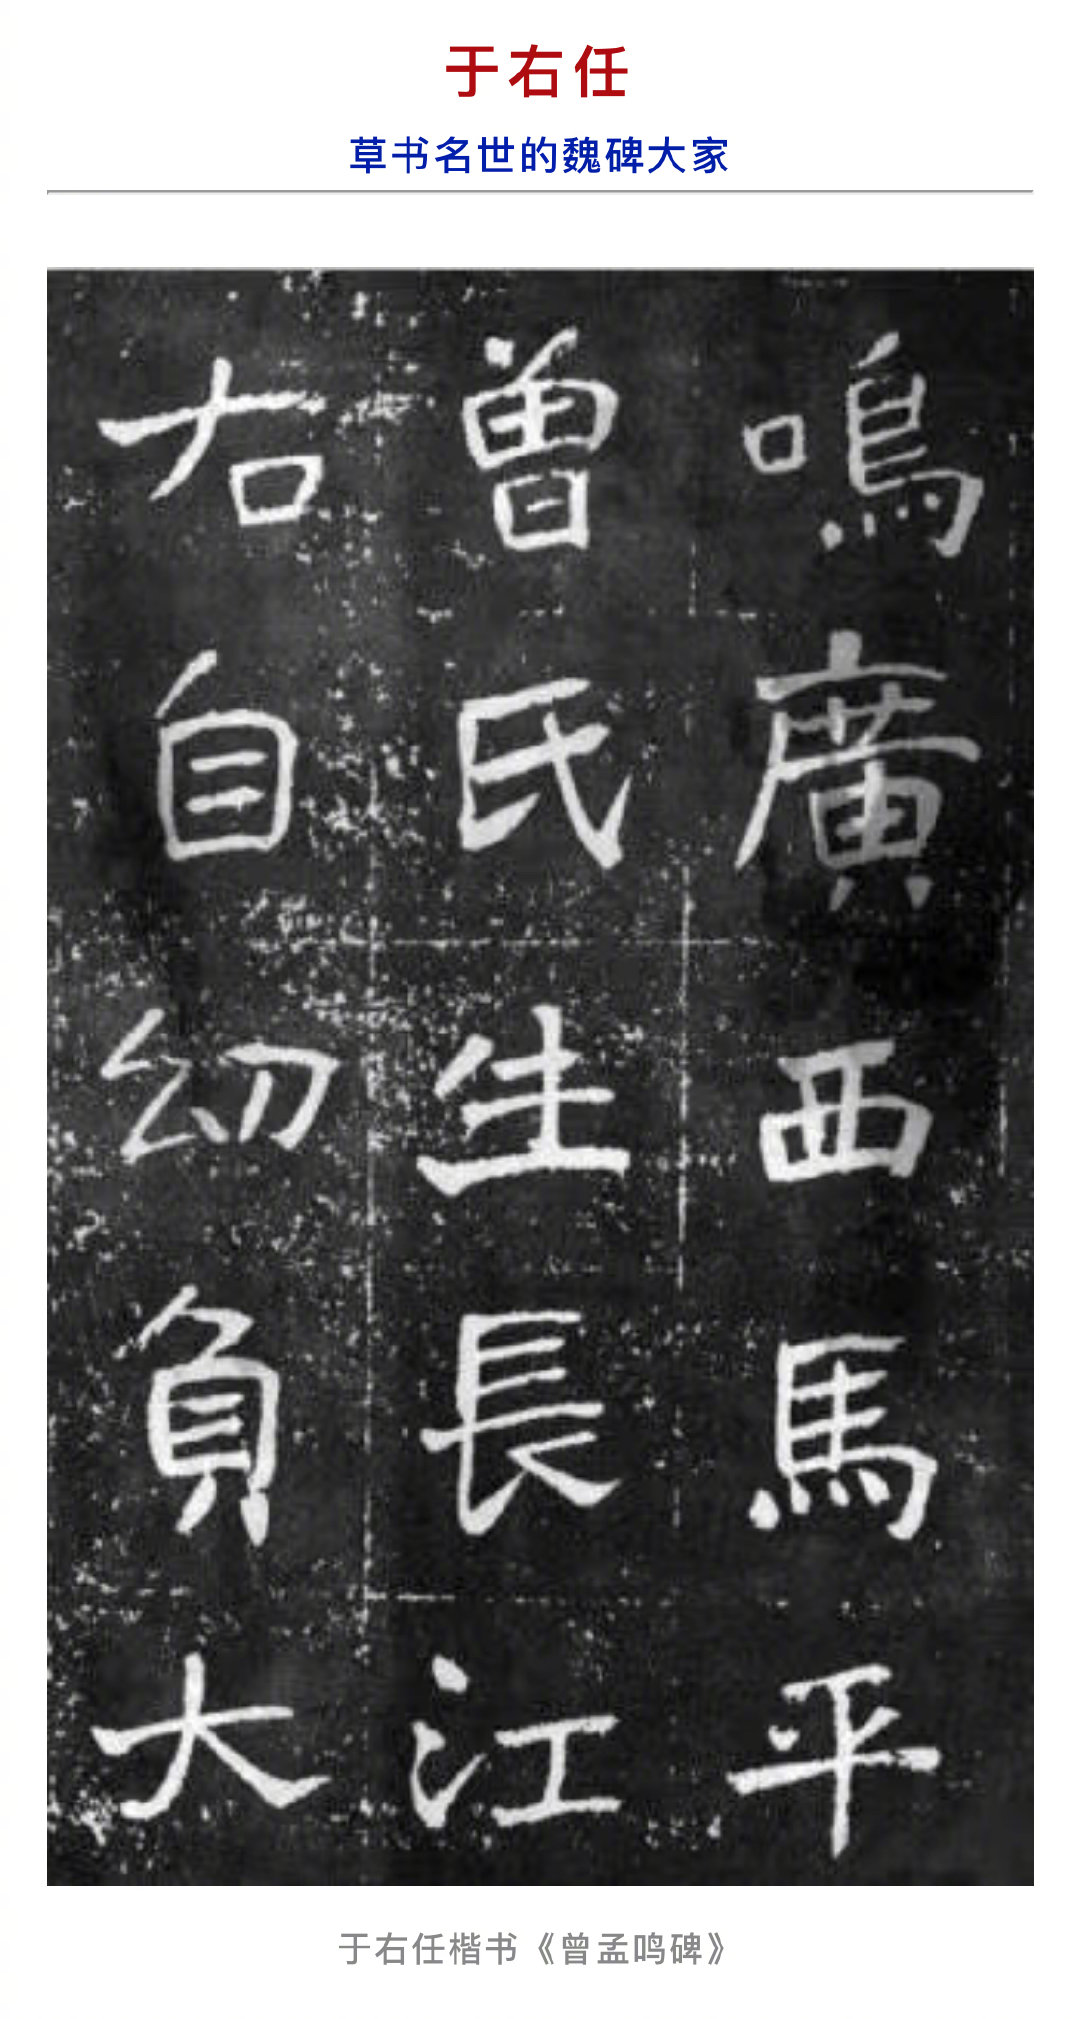 于右任
草书名世的魏碑大家
鳴廣西馬平
曾氏生長江
右自幼負大
于右任楷书《曾孟鸣碑》